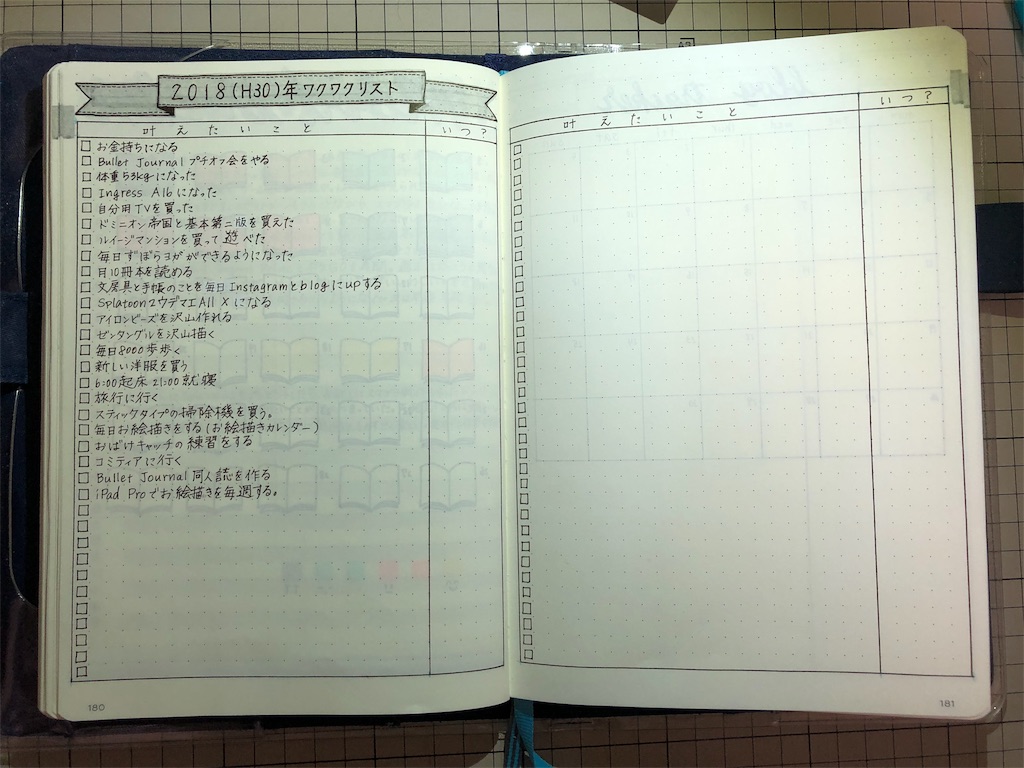 2018(H30)年ワクワクリスト
叶えたいこと いつ?
お金持ちになる
Bullet Journal プチオフ会をやる
体重53kgになった
Ingress A16になった
自分用TVを買った
ドミニオン帝国と基本第二版を買えた
ルイージマンションを買って遊べた
毎日ずぼらヨガができるようになった
月10冊本を読める
文房具と手帳のことを毎日Instagramとblogにupする
Splatoon2ウデマエAll Xになる
アイロンビーズを沢山作れる
ゼンタングルを沢山描く
毎日8000歩歩く
新しい洋服を買う
6:00起床 21:00就寝
旅行に行く
スティックタイプの掃除機を買う。
毎日お絵描きをする(お絵描きカレンダー)
おばけキャッチの練習をする
コミティアに行く
Bullet Journal同人誌を作る
iPad Proでお絵描きを毎週する。
180
叶えたいこと いつ?
181